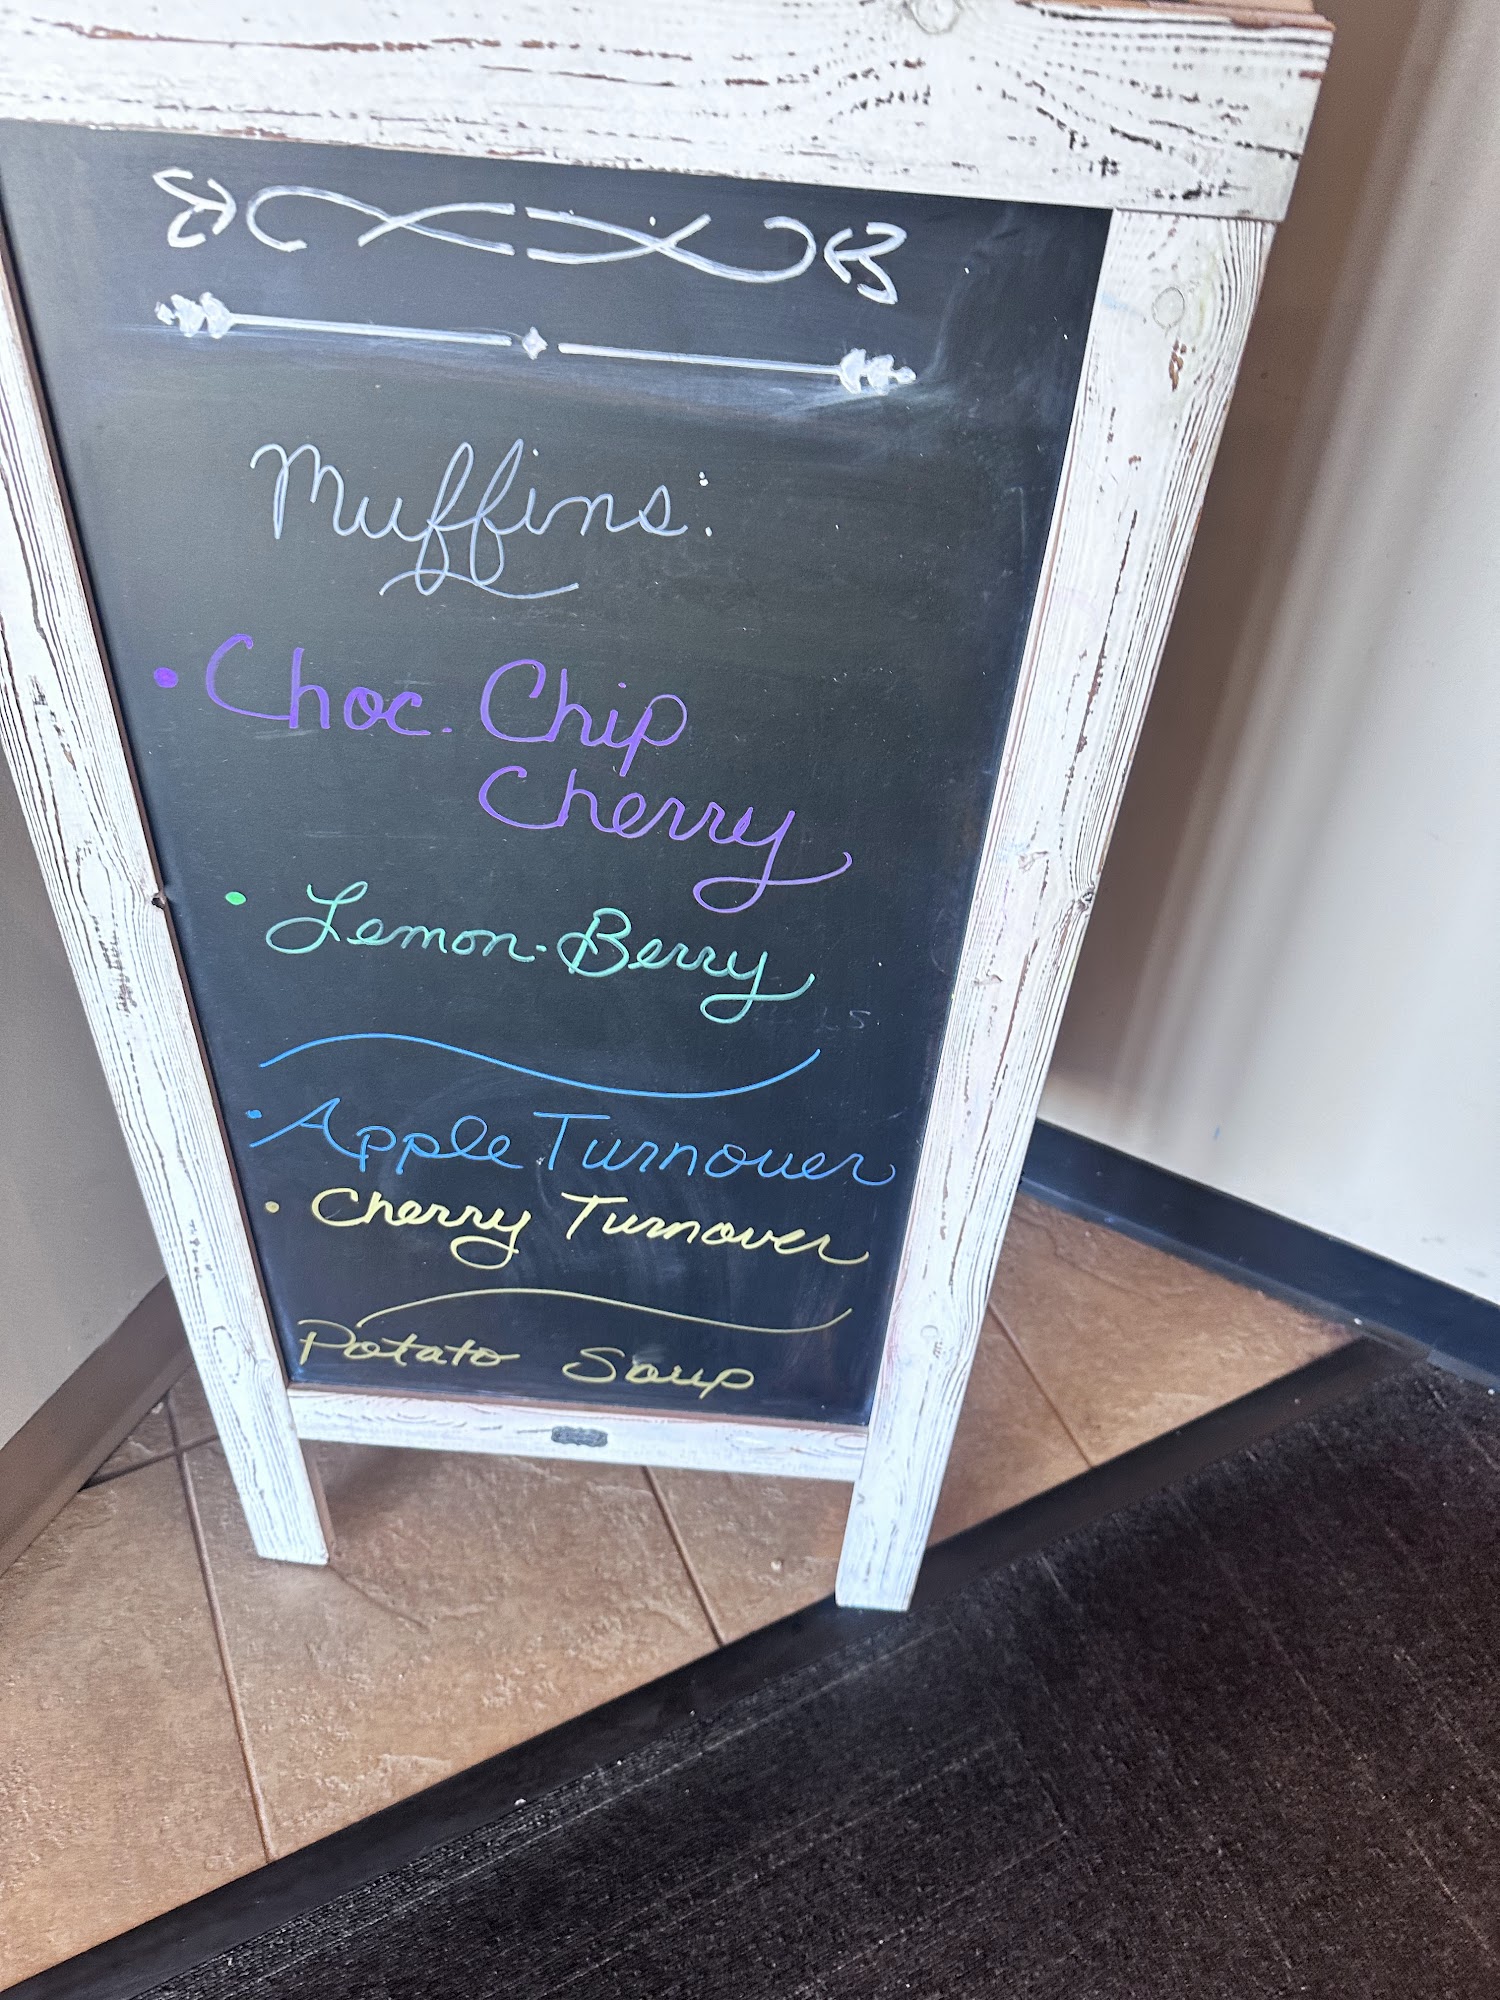 Muffins:
• Choc. Chip
Cherry
• Lemon-Berry
• Apple Turnover
• Cherry Turnover
Potato Soup